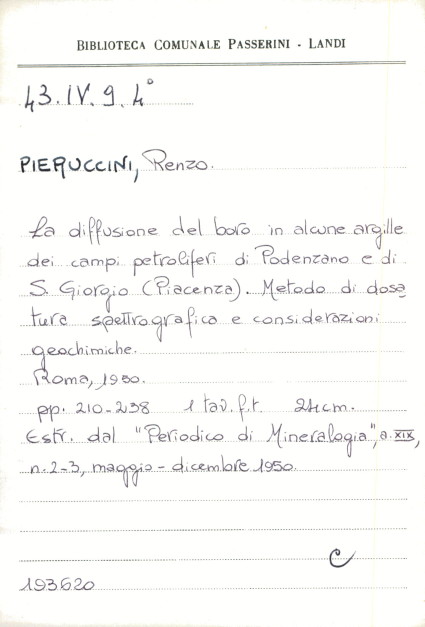 BIBLIOTECA COMUNALE PASSERINI - LANDI
43.IV.9.4°
PIERUCCINI, Renzo.
La diffusione del boro in alcune argille
dei campi petroliferi di Podenzano e di
S. Giorgio (Piacenza). Metodo di dosa
tura spettrografica e considerazioni
geochimiche.
Roma, 1950.
pp. 210-238 1 tav. f.t. 24cm.
Estr. dal "Periodico di Mineralogia", a. XIX,
n. 2-3, maggio - dicembre 1950.
C
193620